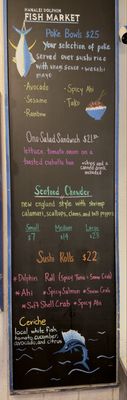 HANALEI DOLPHIN
FISH MARKET
Poke Bowls $25
Your selection of poke
served over sushi rice
with unagi sauce + wasabi
mayo
-Avocado
-Spicy Ahi
-Sesame
-Tako
-Rainbow
Ono Salad Sandwich $21
lettuce, tomato, onion on a
toasted ciabatta bun
+chips and a
canned drink
included
Seafood Chowder
new england style with shrimp
calamari, scallops, clams, and bell peppers
Small
Medium
Large
$7
$14
$23
Sushi Rolls $22
*Dolphin Roll (Spicy Tuna + Snow Crab)
*Ahi
*Spicy Salmon
*Snow Crab
*Soft Shell Crab
*Spicy Ahi
Ceviche
local white fish,
tomato, cucumber,
avocado, and citrus